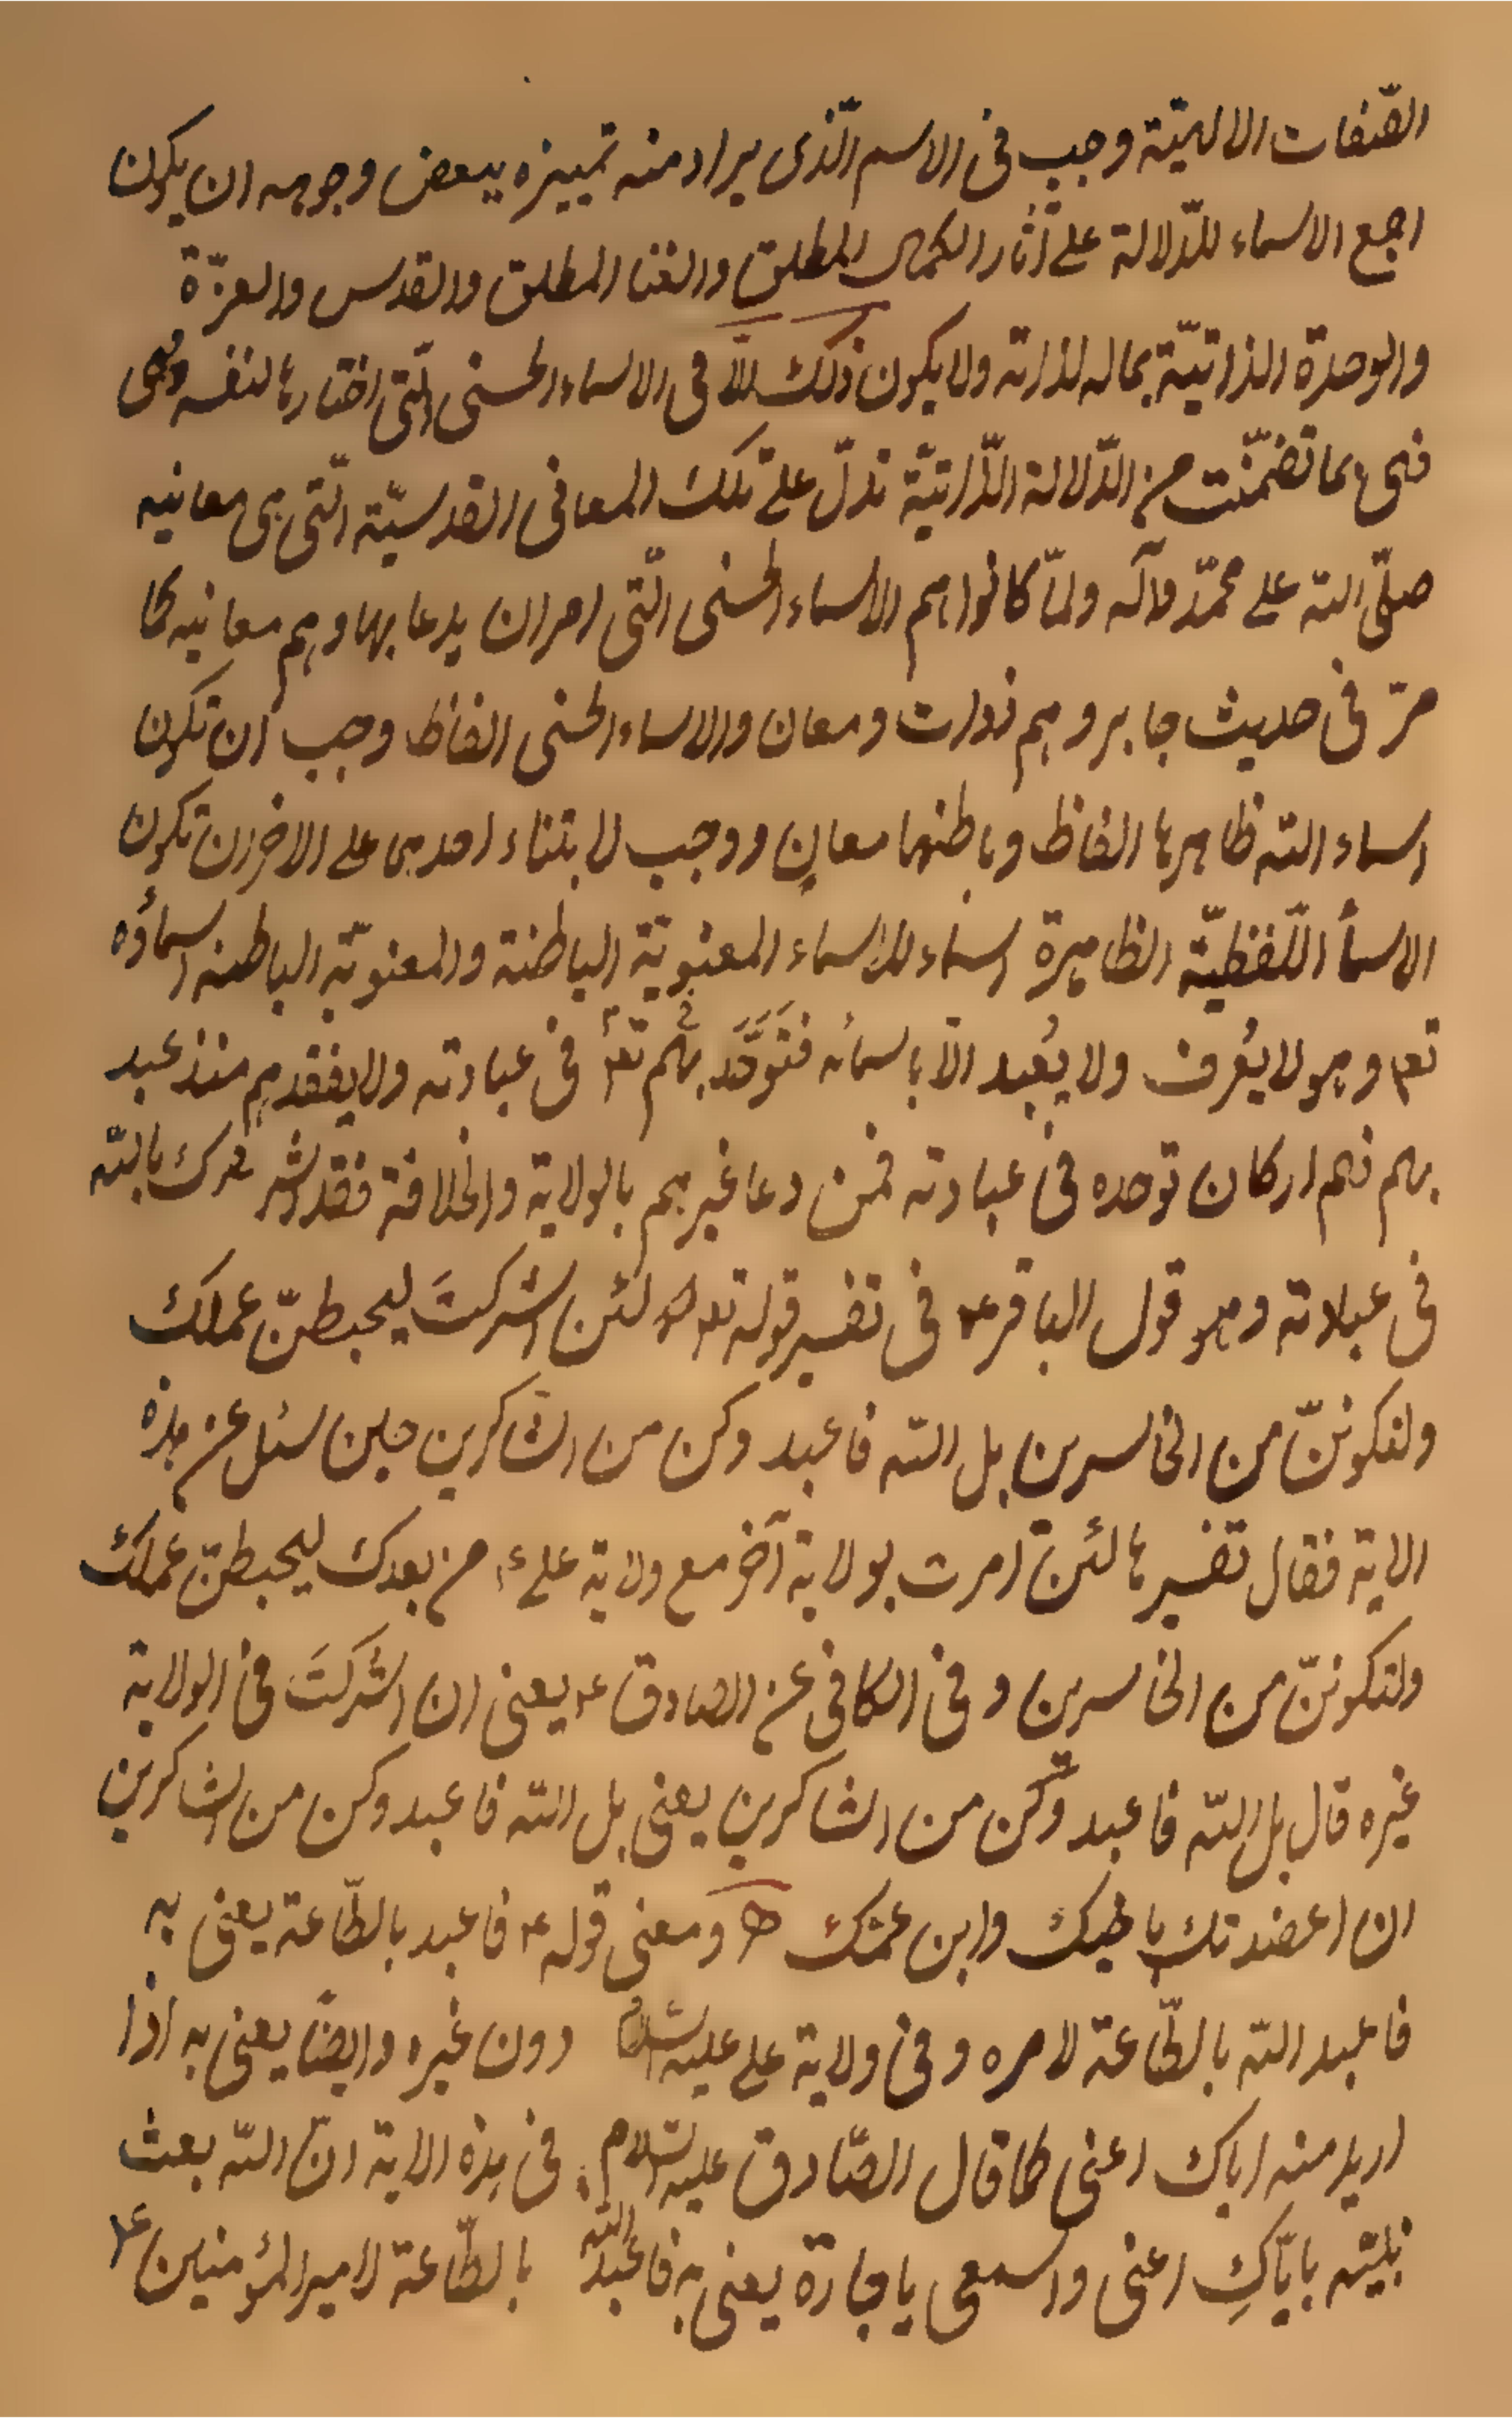 الصّفات الالهيّة وجب فى الاسم الّذى يراد منه تمييزه ببعض وجوهه ان يكون
اجمع الاسماء للدّلالة على آثار الكمال المطلق والغنا المطلق والقدس والعزّة
والوحدة الذاتيّة بما له لذاته ولا يكون ذلك الّا فى الاسماء الحسنى الّتى اختارها لنفسه وهى
فهى بما تضمّنت من الدّلالة الذّاتيّة تدلّ على تلك المعانى القدسيّة الّتى هى معانيه
صلّى الله على محمّد وآله ولمّا كانوا هم الاسماء الحسنى الّتى امر ان يدعا بها وهم معانيه كما
مرّ فى حديث جابر وهم ذوات ومعان والاسماء الحسنى الفاظ وجب ان تكون
اسماء الله ظاهرها الفاظ وباطنها معانٍ ووجب لابتناء احدهما على الاخر ان تكون
الاسمآ اللّفظيّة الظاهرة اسماء للاسماء المعنويّة الباطنة والمعنويّة الباطنه اسماؤه
تعا وهو لا يُعرف ولا يُعبد الّا باسمائه فَتَوَحَّدَ بهم تعا فى عبادته ولا يفقدهم منذ عبد
بهم فهم اركان توحده فى عبادته فمن دعا غيرهم بالولاية والخلافة فقد اشرك بالله
فى عبادته وهو قول الباقر ع فى تفسير قوله تعا لئن اشركتَ ليحبطنّ عملك
ولتكوننّ من الخاسرين بل الله فاعبد وكن من الشاكرين حين سئل عن هذه
الاية فقال تفسيرها لئن امرت بولاية آخر مع ولاية على ع من بعدك ليحبطنّ عملك
ولتكوننّ من الخاسرين وفى الكافى عن الصادق ع يعنى ان اشركتَ فى الولاية
غيره قال بل الله فاعبد وكن من الشاكرين يعنى بل الله فاعبد وكن من الشاكرين
ان اعضدتك باخيك وابن عمّك ومعنى قوله ع فاعبد بالطّاعة يعنى به
فاعبد الله بالطّاعة لامره وفى ولاية على عليه السلام دون غيره وايضًا يعنى به اذا
اريد منه اياك اعنى كما قال الصّادق عليه السّلام فى هذه الاية انّ الله بعث
نبيّه بايّاكِ اعنى واسمعى يا جارة يعنى به فاعبد الله بالطّاعة لامير المؤمنين ع